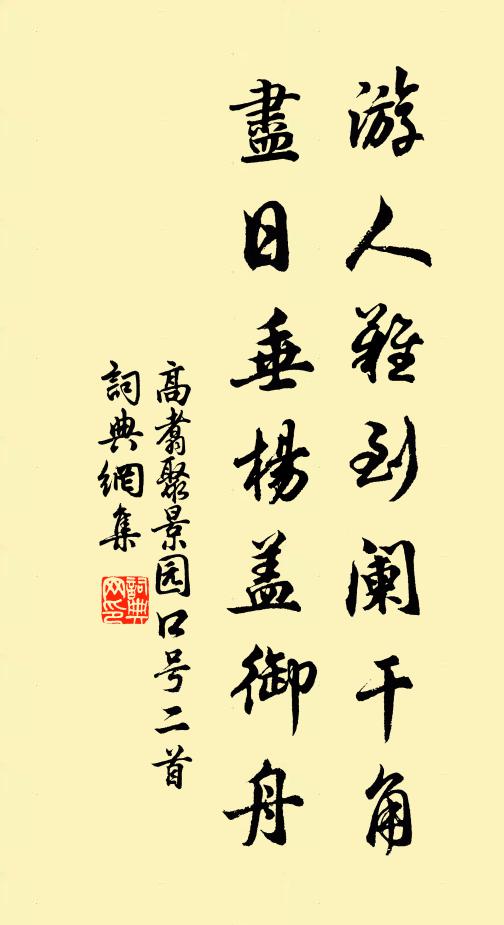 游人難到闌干角
盡日垂楊盖御舟
高翥聚景园口号二首
詞典網集
詞典
网印